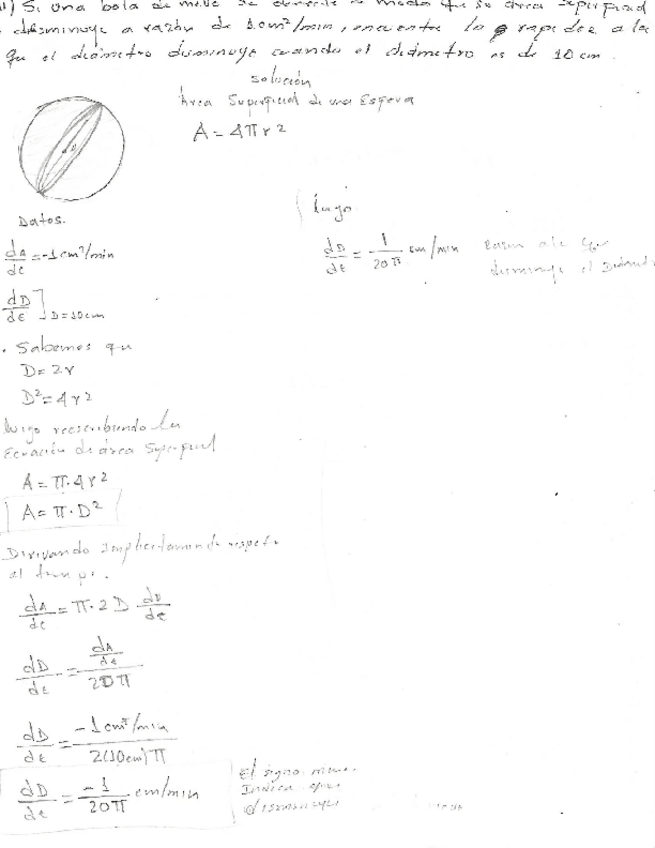 1) Si una bola de nieve se derrite de modo que su área superficial
disminuye a razón de 1 cm²/min, encuentre la rapidez a la
que el diámetro disminuye cuando el diámetro es de 10 cm.
Solución
Área Superficial de una Esfera
A = 4πr²
D
Datos.
dA/dt = -1 cm²/min
dD/dt ]D=10cm
. Sabemos que
D = 2r
D² = 4r²
luego reescribiendo la
Ecuación de área Superficial
A = π·4r²
A = π·D²
Derivando implicitamente respecto
al tiempo.
dA/dt = π·2D dD/dt
dD/dt = dA/dt / 2Dπ
dD/dt = -1cm²/min / 2(10cm)π
dD/dt = -1/20π cm/min
El signo menos
Indica que
disminuye
luego
dD/dt = 1/20π cm/min
Razon a la que
disminuye el Diámetro